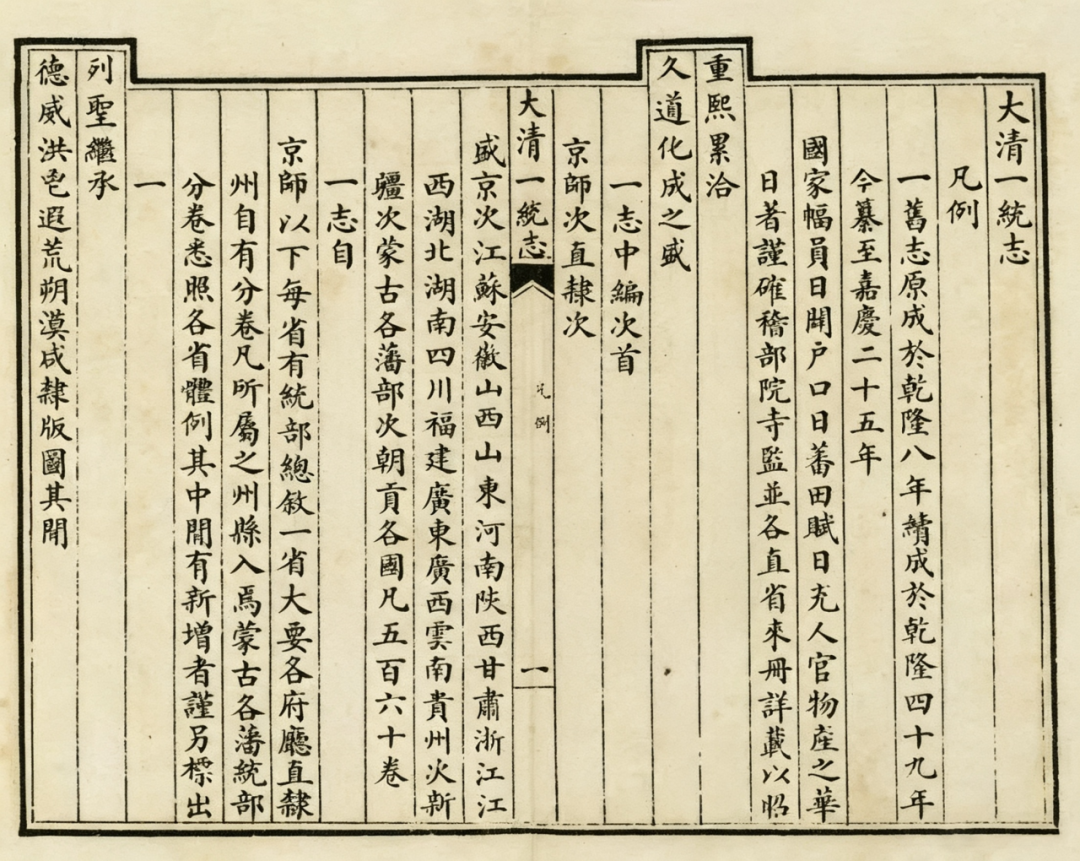 大清一統志
凡例
一舊志原成於乾隆八年續成於乾隆四十九年
今纂至嘉慶二十五年
國家幅員日闢户口日蕃田賦日充人官物產之華
日著謹確稽部院寺監並各直省來冊詳載以昭
重熙累洽
久道化成之盛
一志中編次首
京師次直隸次
大清一統志
凡例
一
盛京次江蘇安徽山西山東河南陝西甘肅浙江江
西湖北湖南四川福建廣東廣西雲南貴州次新
疆次蒙古各藩部次朝貢各國凡五百六十卷
一志自
京師以下每省有統部總敘一省大要各府廳直隸
州自有分卷凡所屬之州縣入焉蒙古各藩統部
分卷悉照各省體例其中閒有新增者謹另標出
一
列聖繼承
德威洪鬯遐荒朔漠咸隸版圖其閒